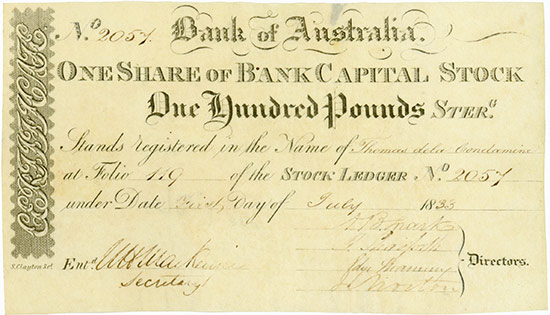 CERTIFICATE
No. 2057. Bank of Australia.
ONE SHARE OF BANK CAPITAL STOCK
One Hundred Pounds STERG.
Stands registered in the Name of Thomas de la Condamine
at Folio 119 of the STOCK LEDGER No. 2057
under Date First, Day of July 1833
Entd.
Secretary
Directors.
S. Clayton Sct.